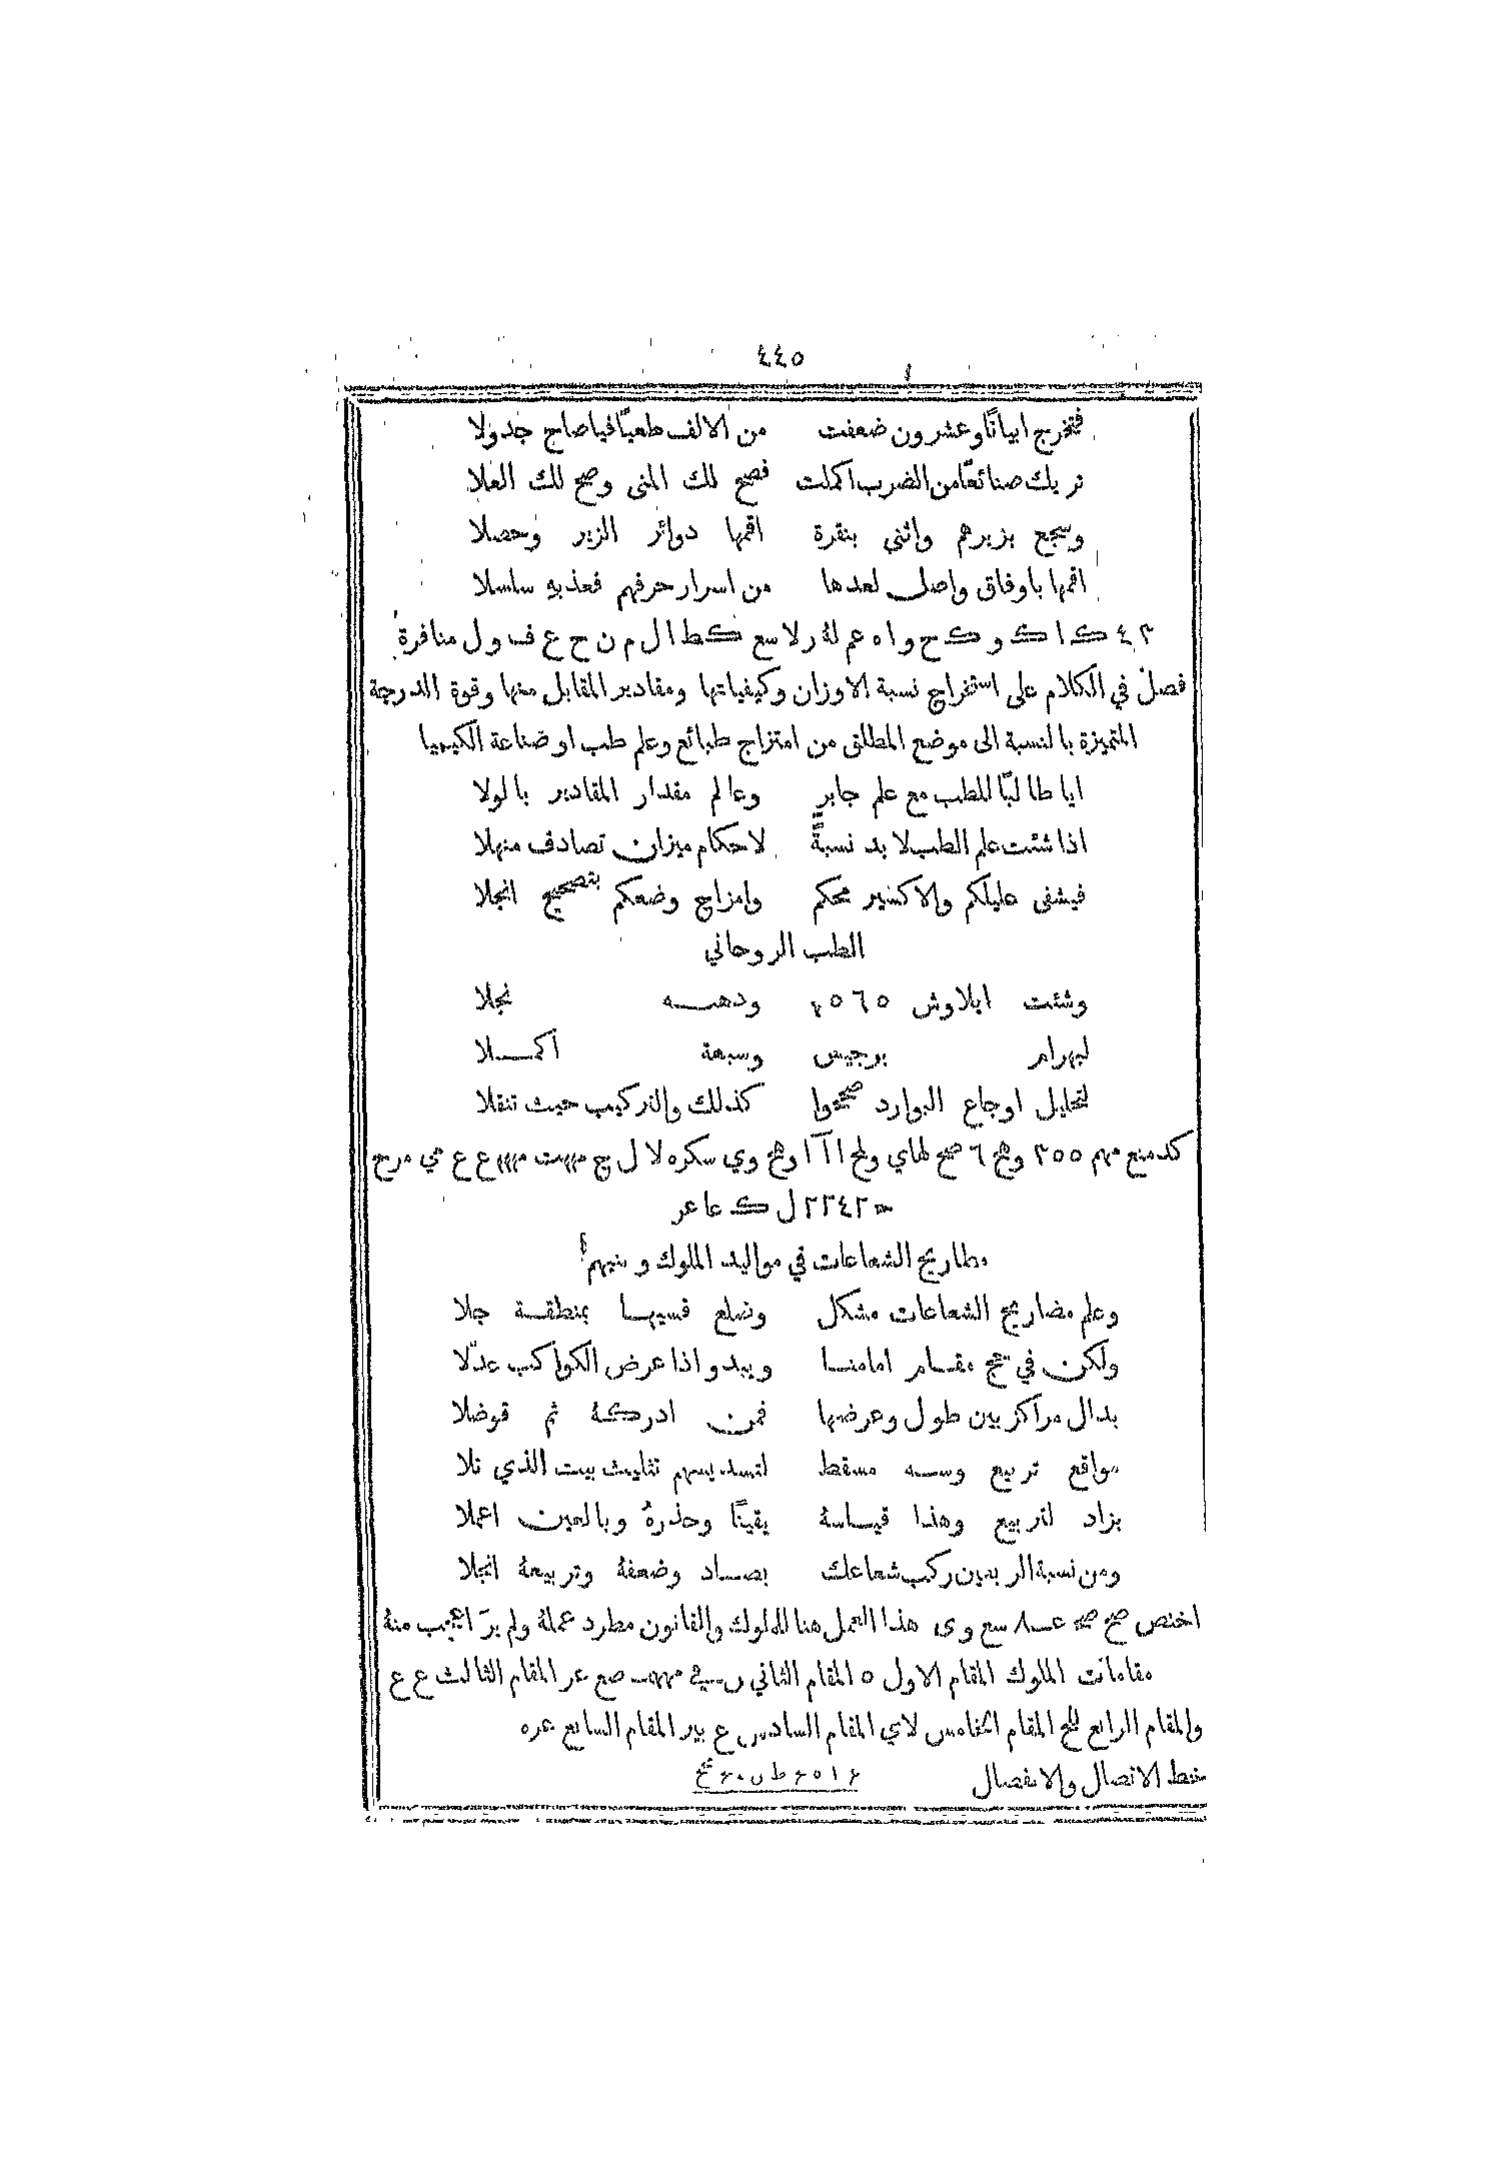 ٤٤٥
فتخرج ابياتًا وعشرون ضعفت من الالف طعيًا فيا صاح جدولا
تريك صنائعًا من الضرب اكملت فصح لك المنى وصح لك العلا
وسجع بزيرهم واثني بنقرة اقمها دوائر الزير وحصلا
اقمها باوفاق واصل لعدها من اسرار حرفهم فعذبه سلسلا
٤٣ ك ا ك و ك ح و ا ه عم له ر لا سع كط ا ل م ن ح ع ف و ل منافرة
فصل في الكلام على استخراج نسبة الاوزان وكيفياتها ومقادير المقابل منها وقوة الدرجة
المتميزة بالنسبة الى موضع المطلق من امتزاج طبائع وعلم طب او صناعة الكيميا
ايا طالبًا للطب مع علم جابر وعالم مقدار المقادير بالولا
اذا شئت علم الطب لا بد نسبةً لاحكام ميزان تصادف منهلا
فيشفى عليلكم والاكسير محكم وامزاج وضعكم بتصحيح انجلا
الطب الروحاني
وشئت ايلاوش ٥٦٥ ودهنه نجلا
لبهرام برجيس وسبعة اكملا
لتحليل اوجاع البوارد صححوا كذلك والتركيب حيث تنقلا
كد منع مهم ٣٥٥ وهح ٦ صح لهاي ولمح ا آ ا وهح وي سكره لا ل ح ع ع مي مرح
٢٢٤٢ ل ك عا عر
مطاريح الشعاعات في مواليد الملوك وبنيهم
وعلم مضاريح الشعاعات مشكل وضلع قسيها بمنطقة جلا
ولكن في حج مقام امامنا ويبدو اذا عرض الكواكب عدّلا
بدال مراكز بين طول وعرضها فمن ادركه ثم فوضلا
مواقع تربيع وسه مسقط لتسديسهم تثليث بيت الذي تلا
يزاد لتربيع وهذا قياسه يقينًا وحذره وبالعين اعملا
ومن نسبة الربعين ركب شعاعك بصاد وضعفه وتربيعه انجلا
اختص صح صه عـ٨ سع وى هذا العمل هنا للملوك والقانون مطرد عمله ولم يرَ اعجب منه
مقامات الملوك المقام الاول ٥ المقام الثاني صع عر المقام الثالث ع ع
والمقام الرابع للح المقام الخامس لاي المقام السادس ع بير المقام السابع عره
خط الاتصال والانفصال